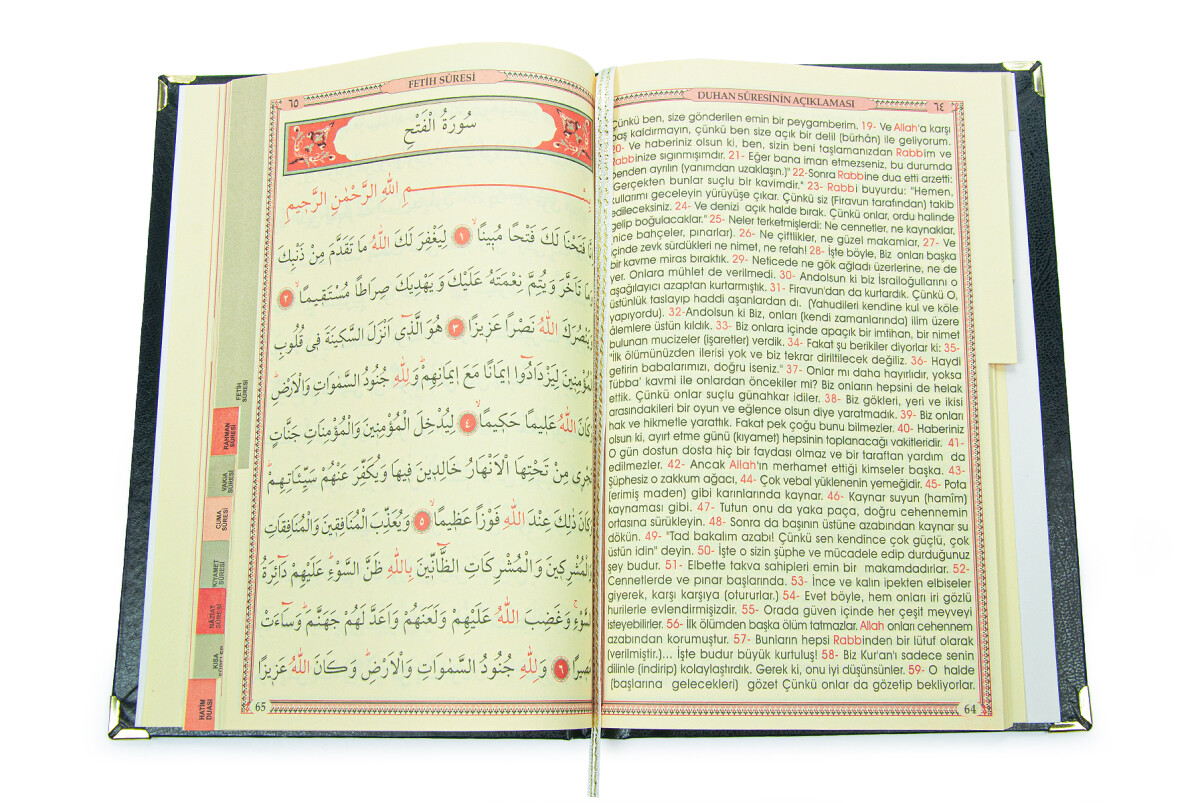 DUHAN SÛRESİNİN AÇIKLAMASI
٦٤
Çünkü ben, size gönderilen emin bir peygamberim. 19- Ve Allah'a karşı
baş kaldırmayın, çünkü ben size açık bir delil (bürhân) ile geliyorum.
20- Ve haberiniz olsun ki, ben, sizin beni taşlamanızdan Rabbim ve
Rabbinize sığınmışımdır. 21- Eğer bana iman etmezseniz, bu durumda
benden ayrılın (yanımdan uzaklaşın.)" 22-Sonra Rabbine dua etti arzetti:
"Gerçekten bunlar suçlu bir kavimdir." 23- Rabbi buyurdu: "Hemen,
kullarımı geceleyin yürüyüşe çıkar. Çünkü siz (Firavun tarafından) takib
edileceksiniz. 24- Ve denizi açık halde bırak. Çünkü onlar, ordu halinde
gelip boğulacaklar." 25- Neler terketmişlerdi: Ne cennetler, ne kaynaklar,
(nice bahçeler, pınarlar). 26- Ne çiftlikler, ne güzel makamlar, 27- Ve
içinde zevk sürdükleri ne nimet, ne refah! 28- İşte böyle, Biz onları başka
bir kavme miras bıraktık. 29- Neticede ne gök ağladı üzerlerine, ne de
yer. Onlara mühlet de verilmedi. 30- Andolsun ki biz İsrailoğullarını o
aşağılayıcı azaptan kurtarmıştık. 31- Firavun'dan da kurtardık. Çünkü O,
üstünlük taslayıp haddi aşanlardan dı. (Yahudileri kendine kul ve köle
yapıyordu). 32-Andolsun ki Biz, onları (kendi zamanlarında) ilim üzere
âlemlere üstün kıldık. 33- Biz onlara içinde apaçık bir imtihan, bir nimet
bulunan mucizeler (işaretler) verdik. 34- Fakat şu berikiler diyorlar ki: 35-
"İlk ölümünüzden ilerisi yok ve biz tekrar diriltilecek değiliz. 36- Haydi
getirin babalarımızı, doğru iseniz." 37- Onlar mı daha hayırlıdır, yoksa
Tübba' kavmi ile onlardan öncekiler mi? Biz onların hepsini de helak
ettik. Çünkü onlar suçlu günahkar idiler. 38- Biz gökleri, yeri ve ikisi
arasındakileri bir oyun ve eğlence olsun diye yaratmadık. 39- Biz onları
hak ve hikmetle yarattık. Fakat pek çoğu bunu bilmezler. 40- Haberiniz
olsun ki, ayırt etme günü (kıyamet) hepsinin toplanacağı vakitleridir. 41-
O gün dostun dosta hiç bir faydası olmaz ve bir taraftan yardım da
edilmezler. 42- Ancak Allah'ın merhamet ettiği kimseler başka. 43-
Şüphesiz o zakkum ağacı, 44- Çok vebal yüklenenin yemeğidir. 45- Pota
(erimiş maden) gibi karınlarında kaynar. 46- Kaynar suyun (hamîm)
kaynaması gibi. 47- Tutun onu da yaka paça, doğru cehennemin
ortasına sürükleyin. 48- Sonra da başının üstüne azabından kaynar su
dökün. 49- "Tad bakalım azabı! Çünkü sen kendince çok güçlü, çok
üstün idin" deyin. 50- İşte o sizin şüphe ve mücadele edip durduğunuz
şey budur. 51- Elbette takva sahipleri emin bir makamdadırlar. 52-
Cennetlerde ve pınar başlarında. 53- İnce ve kalın ipekten elbiseler
giyerek, karşı karşıya (otururlar.) 54- Evet böyle, hem onları iri gözlü
hurilerle evlendirmişizdir. 55- Orada güven içinde her çeşit meyveyi
isteyebilirler. 56- İlk ölümden başka ölüm tatmazlar. Allah onları cehennem
azabından korumuştur. 57- Bunların hepsi Rabbinden bir lütuf olarak
(verilmiştir.)... İşte budur büyük kurtuluş! 58- Biz Kur'an'ı sadece senin
dilinle (indirip) kolaylaştırdık. Gerek ki, onu iyi düşünsünler. 59- O halde
(başlarına gelecekleri) gözet Çünkü onlar da gözetip bekliyorlar.
64
٦٥
FETİH SÛRESİ
سُورَةُ الْفَتْحِ
ـمِ اللّٰهِ الرَّحْمٰنِ الرَّح۪يمِ
فَتَحْنَا لَكَ فَتْحًا مُب۪ينًاۙ ١ لِيَغْفِرَ لَكَ اللّٰهُ مَا تَقَدَّمَ مِنْ ذَنْبِكَ
تَاَخَّرَ وَيُتِمَّ نِعْمَتَهُ عَلَيْكَ وَيَهْدِيَكَ صِرَاطًا مُسْتَق۪يمًاۙ ٢
وَيَنْصُرَكَ اللّٰهُ نَصْرًا عَز۪يزًا ٣ هُوَ الَّذ۪ٓي اَنْزَلَ السَّك۪ينَةَ ف۪ي قُلُوبِ
الْمُؤْمِن۪ينَ لِيَزْدَادُٓوا ا۪يمَانًا مَعَ ا۪يمَانِهِمْۜ وَلِلّٰهِ جُنُودُ السَّمٰوَاتِ وَالْاَرْضِۜ
كَانَ اللّٰهُ عَل۪يمًا حَك۪يمًاۙ ٤ لِيُدْخِلَ الْمُؤْمِن۪ينَ وَالْمُؤْمِنَاتِ جَنَّاتٍ
تَجْر۪ي مِنْ تَحْتِهَا الْاَنْهَارُ خَالِد۪ينَ ف۪يهَا وَيُكَفِّرَ عَنْهُمْ سَيِّـَٔاتِهِمْۜ
كَانَ ذٰلِكَ عِنْدَ اللّٰهِ فَوْزًا عَظ۪يمًاۙ ٥ وَيُعَذِّبَ الْمُنَافِق۪ينَ وَالْمُنَافِقَاتِ
الْمُشْرِك۪ينَ وَالْمُشْرِكَاتِ الظَّٓانّ۪ينَ بِاللّٰهِ ظَنَّ السَّوْءِۜ عَلَيْهِمْ دَٓائِرَةُ
السَّوْءِۚ وَغَضِبَ اللّٰهُ عَلَيْهِمْ وَلَعَنَهُمْ وَاَعَدَّ لَهُمْ جَهَنَّمَۜ وَسَٓاءَتْ
مَص۪يرًا ٦ وَلِلّٰهِ جُنُودُ السَّمٰوَاتِ وَالْاَرْضِۜ وَكَانَ اللّٰهُ عَز۪يزًا
65
FETİH
SÛRESİ
RAHMAN
SÛRESİ
VAKIA
SÛRESİ
CUMA
SÛRESİ
KIYAMET
SÛRESİ
NAZİAT
SÛRESİ
KISA
HATİM
DUASI